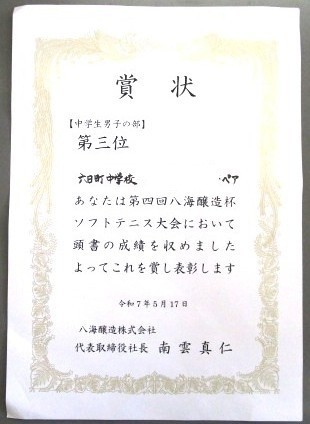 賞状
【中学生男子の部】
第三位
六日町中学校 ペア
あなたは第四回八海醸造杯
ソフトテニス大会において
頭書の成績を収めました
よってこれを賞し表彰します
令和7年5月17日
八海醸造株式会社
代表取締役社長 南雲真仁